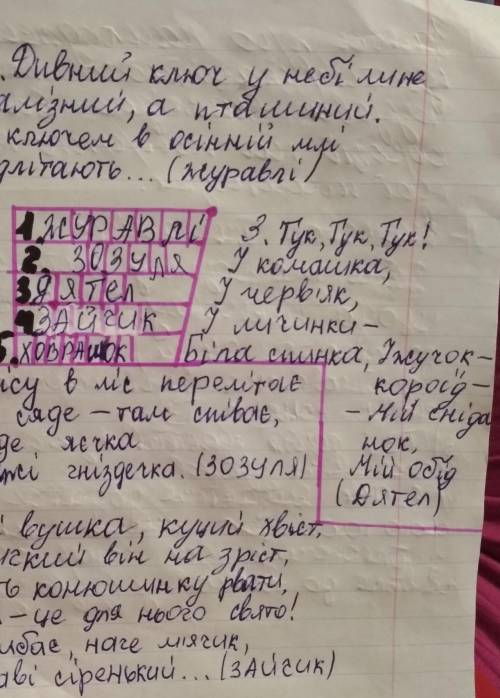 . Дивний ключ у небі лине
алізний, а пташиний.
ключем в осінній млі
длітають... (журавлі)
1. ЖУРАВЛІ
2. ЗОЗУЛЯ
3 ДЯТЕЛ
4 ЗАЙЧИК
5. ХОВРАШОК
3. Тук, Тук, Тук!
І комашка,
І черв'як,
І личинки –
Біла спинка, І жучок –
короїд –
– Мій сніда
нок,
Мій обід
(Дятел)
ісу в ліс перелітає
сяде – там співає,
де яєчка
жі гніздечка. (ЗОЗУЛЯ)
і вушка, куций хвіст,
він на зріст,
ть конюшинку рвати,
– це для нього свято!
ибає, наче м'ячик,
аві сіренький... (ЗАЙЧИК)